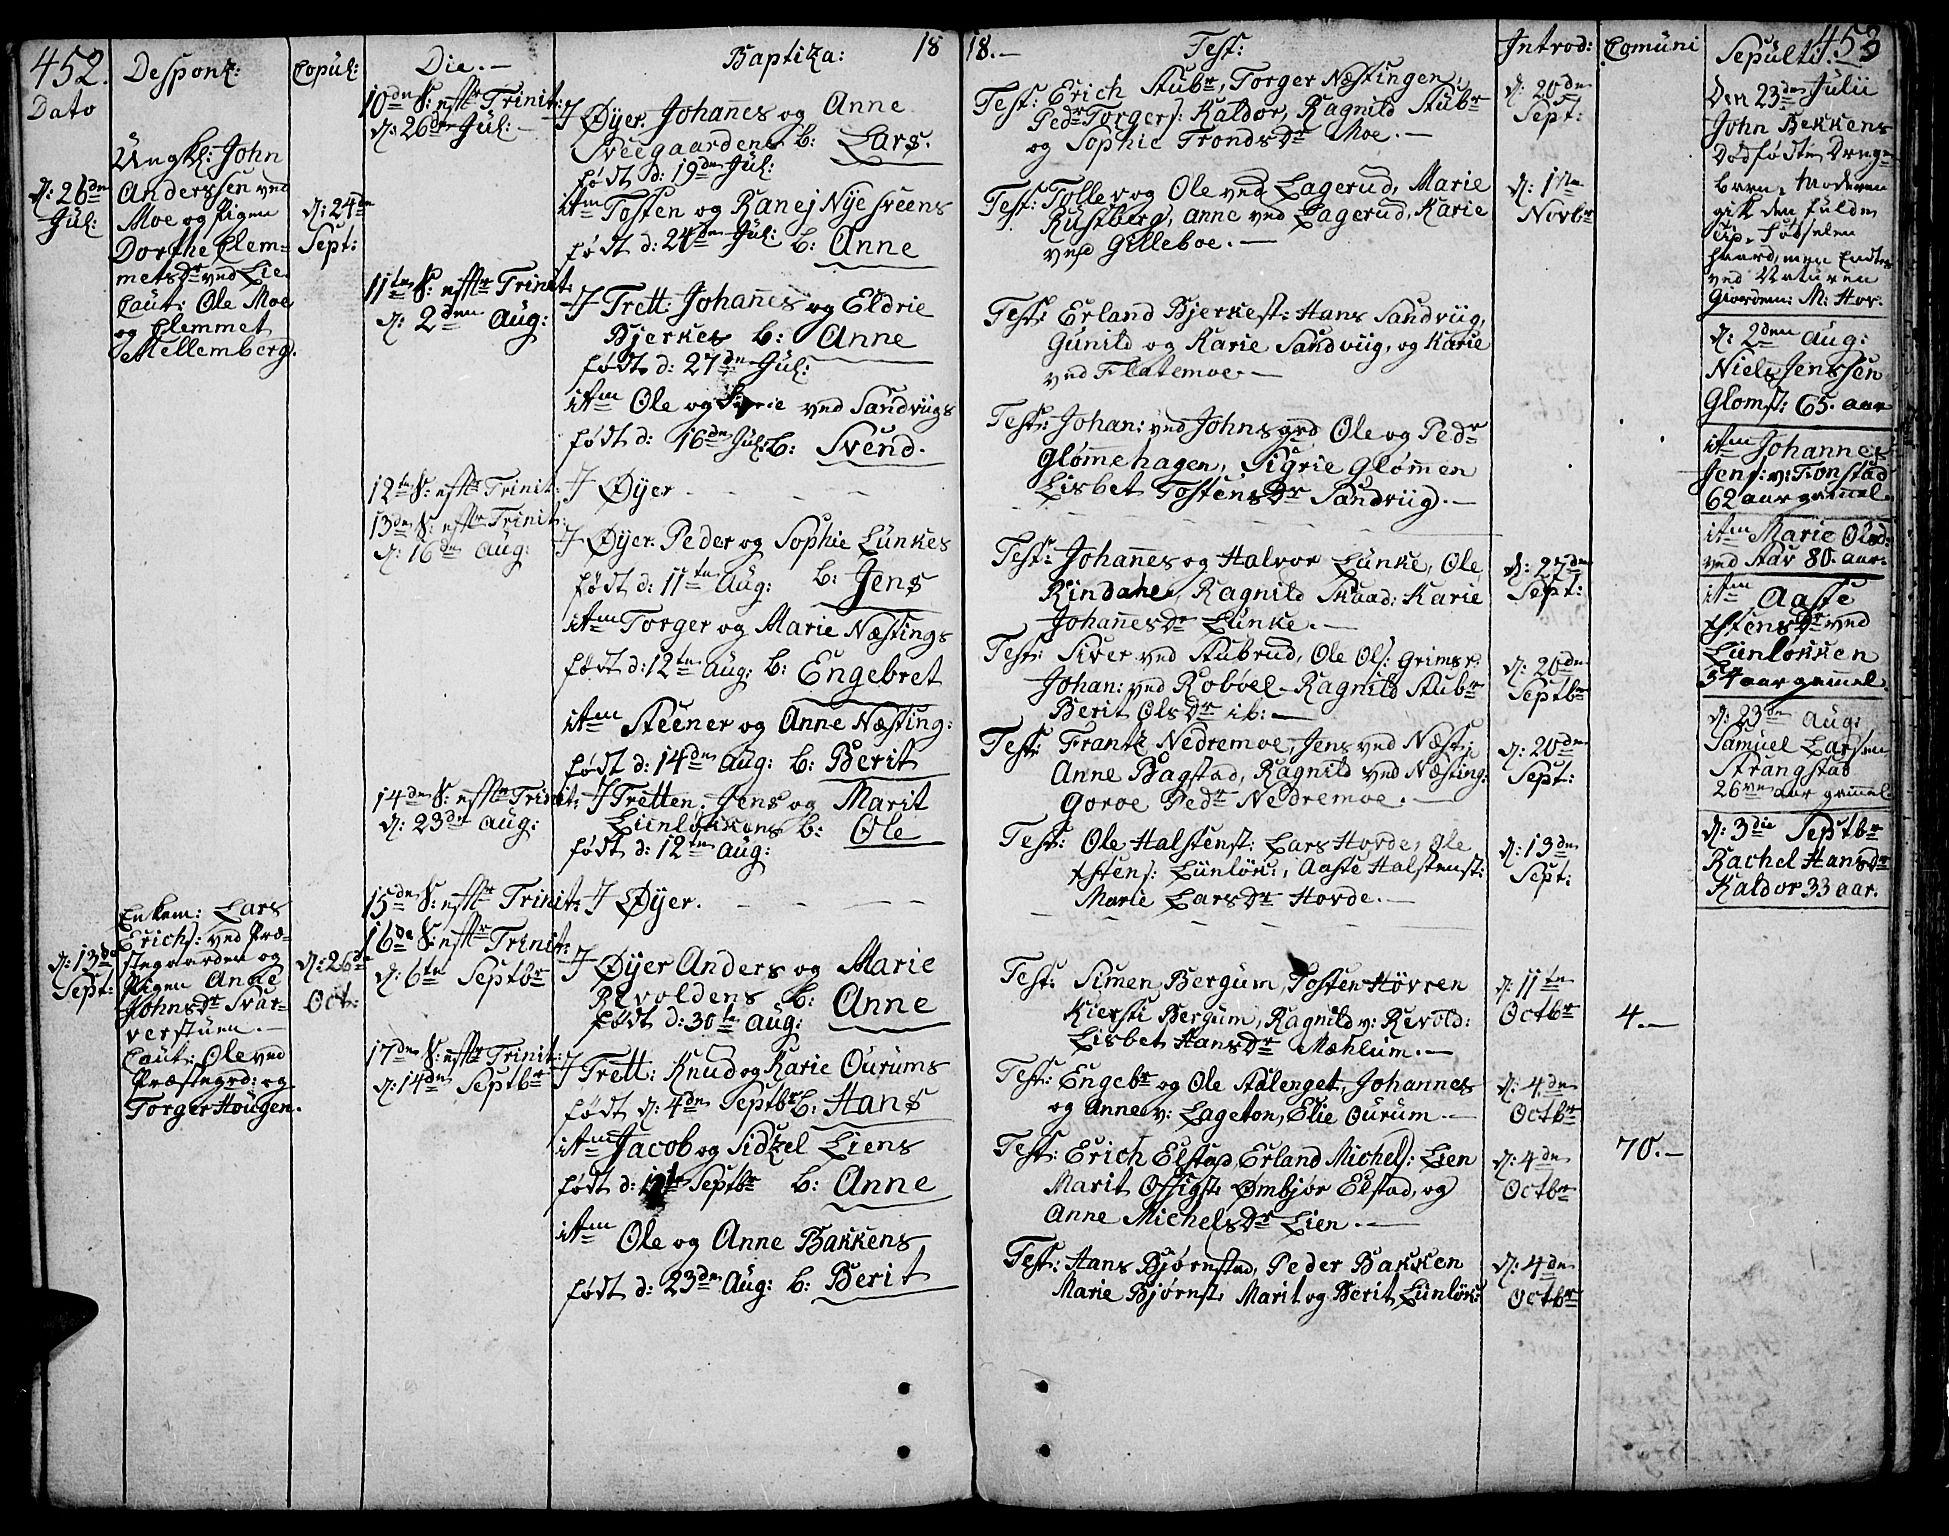 452.
Dato
d: 26de
Jul:
d: 13de
Sept:
Despons:
Ungkl: John
Anderssen ved
Moe og Pigen
Dorthe Clem-
mets Dr ved Lie.
Caut: Ole Moe
og Clemmet
Mellemberg.
Enkem: Lars
Erichs: ved Præ-
stegaarden og
Pigen Anne
Johns Dr Svar-
verstuen.—
Caut: Ole ved
Præstegrd: og
Torger Hougen.
Copul:
d: 24de
Sept:
d: 26de
Oct:
Die.—
10de S: efftr Trinit:
d: 26de Jul:—
11te S: efftr Trinit:
d: 2den Aug:
12te S: efftr Trinit:
13de S: efftr Trinit:
d: 16de Aug:
14de S: efftr Trinit:
d: 23de Aug:
15de S: efftr Trinit:
16de S: efftr Trinit:
d: 6te Septbr
17de S: efftr Trinit:
d: 14de Septbr
Baptiza: 18
J Øyer. Johannes og Anne
Sveegaardens b: Lars.
født d: 19de Jul:
itm Tosten og Ranej Nye sveens
født d: 24de Jul: b: Anne
J Trett: Johannes og Eldrie
Bjerkes b: Anne
født d: 27de Jul:
itm Ole og ved Sandvugs
født d: 16de Jul: b: Svend.
J Øyer - - - -
J Øyer. Peder og Sophie Lunkes
født d: 11te Aug: b: Jens
itm Torger og Marie Næstings
født d: 12te Aug: b: Engebret
itm Steener og Anne Næsting:
født d: 14de Aug: b: Berit
J Tretten. Jens og Marit
Lienløkkens b: Ole
født d: 12te Aug:
J Øyer. - - - -
J Øyer Anders og Marie
Revoldens b: Anne
født d: 30te Aug:
J Trett: Knud og Karie Ourums
født d: 4de Septbr b: Hans
itm Jacob og Sidzel Liens
født d: Septbr b: Anne
itm Ole og Anne Bakkens
født d: 23de Aug: b: Berit
18.— Test:
Test: Erich Stubr, Torger Næstingen,
Pedr Torgers: Kaldor, Ragnild Stubr
og Sophie Tronds Dr Moe.—
Test: Tollev og Ole ved Lagerud, Marie
Rustberg, Anne ved Lagerud, Karie
ved Gilleboe.—
Test: Erland Bjerkest: Hans Sandvug,
Gunild og Karie Sandvug, og Karie
ved Flatemoe.—
Test: Johan: ved Johnsgrd Ole og Pedr
Glømmehagen, Sigrie Glømmen
Lisbet Tostens Dr Sandvug.—
Test: Johannes og Halvor Lunke, Ole
Rindahe, Ragnild Skaad: Karie
Johannes Dr Lunke.—
Test: Siver ved Stubrud, Ole Ols: Grimsr:
Johan: ved Robøel - Ragnild Stubr
Berit Ols Dr ib:—
Test: Frantz Nedremoe, Jens ved Næst:
Anne Bagstad, Ragnild ved Næsting:
Goroe Pedr Nedremoe.—
Test: Ole Halstenst: Lars Horde, Ole
Lunløk:, Aaste Halstenst:
Marie Lars Dr Horde.—
Test: Simen Bergum, Tosten Høvren
Kiersti Bergum, Ragnild v: Revold:
Lisbet Hans Dr Mæhlum.—
Test: Engebr og Ole Stalenget, Johannes
og Anne v: Lageton, Elie Ourum.—
Test: Erich Elstad, Erland Michels: Lien
Marit Offigst: Ømbjør Elstad, og
Anne Michels Dr Lien.—
Test: Hans Bjørnstad, Peder Bakken
Marie Bjørnst: Marit og Berit Lunløk:
Introd:
d: 20de
Sept:
d: 1ste
Novbr
d: 27de
Sept:
d: 20de
Septbr
d: 20de
Sept:
d: 13de
Sept:
d: 11te
Octbr
d: 4de
Octbr
d: 4de
Octbr
d: 4de
Octbr
Comuni
4.—
70.—
453
Sepulti:
Den 23de Julii
John Bekkens
Dødfødte Drenge-
barn. Moderen
gik den fulde
Tid. Fødselen
haard, men Endtes
ved Naturen
Giordem: M: Hov.
d: 2den Aug:
Niels Jenssen
Glomst: 65. aar
itm Johannes
Jens: v: Tronstad
62 aar gammel.
itm Marie Olsd:
ved Stav 80. aar.
itm Aaste
ved
Lunløkken
54 aar gammel.
d: 23de Aug:
Samuel Larsen
Strangstad
26 aar gammel
d: 3die Septbr
Rachel Hansdr
Kaldor 33 aar.